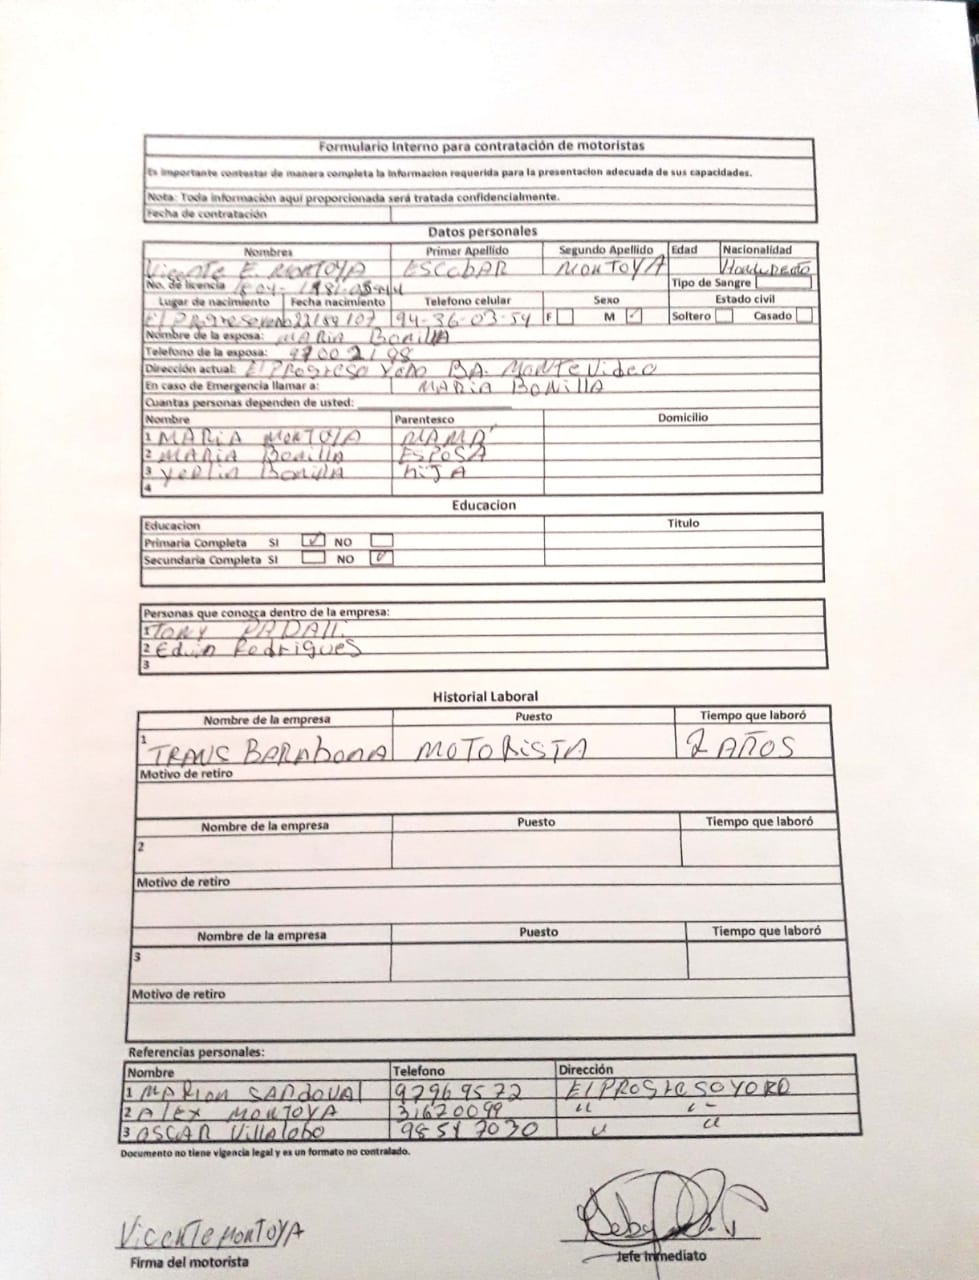 Formulario Interno para contratación de motoristas
Es importante contestar de manera completa la informacion requerida para la presentacion adecuada de sus capacidades.
Nota: Toda información aquí proporcionada será tratada confidencialmente.
Fecha de contratación
Datos personales
Nombres Primer Apellido Segundo Apellido Edad Nacionalidad
Vicente E. MONTOYA ESCOBAR MONTOYA
No. de licencia Tipo de Sangre
Lugar de nacimiento Fecha nacimiento Telefono celular Sexo Estado civil
El Progreso 94-36-03-54 F M ✓ Soltero Casado
Nombre de la esposa: MARIA Bonilla
Telefono de la esposa: 97002198
Dirección actual: El Progreso Yoro BA. Montevideo
En caso de Emergencia llamar a: MARIA BONILLA
Cuantas personas dependen de usted:
Nombre Parentesco Domicilio
1 MARIA MONTOYA MAMÁ
2 MARIA Bonilla ESPOSA
3 Bonilla HIJA
4
Educacion
Educacion Titulo
Primaria Completa SI ✓ NO
Secundaria Completa SI NO ✓
Personas que conozca dentro de la empresa:
1 Tony
2 Edwin Rodrigues
3
Historial Laboral
Nombre de la empresa Puesto Tiempo que laboró
1 TRANS BARAHONA MOTORISTA 2 AÑOS
Motivo de retiro
Nombre de la empresa Puesto Tiempo que laboró
2
Motivo de retiro
Nombre de la empresa Puesto Tiempo que laboró
3
Motivo de retiro
Referencias personales:
Nombre Telefono Dirección
1 MARION SANDOVAL 97969572 El PROGRESO YORO
2 Alex MONTOYA 31670099 " "
3 OSCAR Villalobo 98547030 " "
Documento no tiene vigencia legal y es un formato no contralado.
Vicente MONTOYA
Firma del motorista Jefe Inmediato